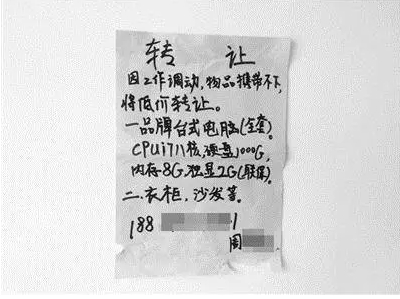 转 让
因工作调动,物品携带不下,
将低价转让。
一品牌台式电脑(全套)。
CPUi7八核,硬盘1000G,
内存8G,独显2G(联保)。
二.衣柜,沙发等。
188 1
周